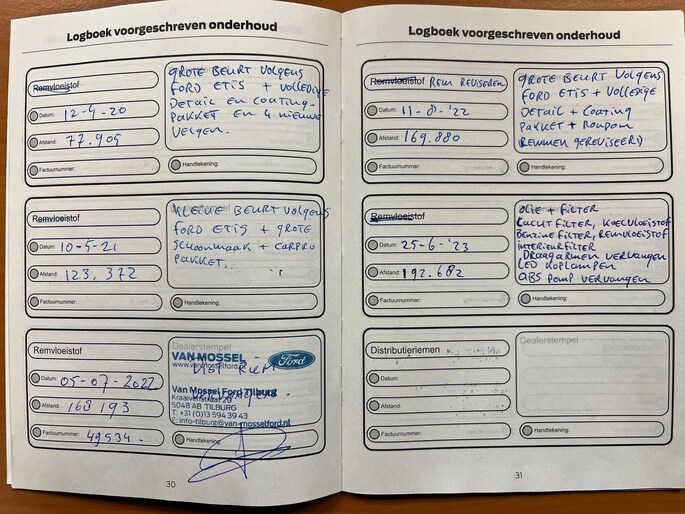 Logboek voorgeschreven onderhoud
Remvloeistof
Datum: 12-4-20
Afstand: 77.905
Factuurnummer:
GROTE BEURT VOLGENS
FORD ETIS + VOLLEDIGE
DETAIL EN COATING-
PAKKET EN 4 NIEUWE
VELGEN.
Handtekening:
Remvloeistof
Datum: 10-5-21
Afstand: 123.372
Factuurnummer:
Dealerstempel
KLEINE BEURT VOLGENS
FORD ETIS + GROTE
SCHOONMAAK + CARPRO
PAKKET.
Handtekening:
Remvloeistof
Datum: 05-07-2022
Afstand: 168193
Factuurnummer: 49534-
Dealerstempel
VAN MOSSEL Ford
www.vanmosselford.nl
Van Mossel Ford Tilburg
Kraaivenstraat 20
5048 AB TILBURG
T: +31 (0)13 594 39 43
E: info-tilburg@van-mosselford.nl
Handtekening:
30
Logboek voorgeschreven onderhoud
Remvloeistof REM REVISEREN
Datum: 11-8-'22
Afstand: 169.880
Factuurnummer:
GROTE BEURT VOLGENS
FORD ETIS + VOLLEDIGE
DETAIL + COATING
PAKKET + RONDOM
REMMEN GEREVISEERD
Handtekening:
Remvloeistof
Datum: 25-6-'23
Afstand: 192.682
Factuurnummer:
OLIE + FILTER
LUCHTFILTER, KOELVLOEISTOF
BENZINEFILTER, REMVLOEISTOF
INTERIEURFILTER
DRAAGARMEN VERVANGEN
LED KOPLAMPEN
ABS POMP VERVANGEN
Handtekening:
Distributieriemen
Datum:
Afstand:
Factuurnummer:
Dealerstempel
Handtekening:
31